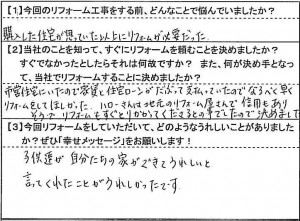 【1】今回のリフォーム工事をする前、どんなことで悩んでいましたか?
購入した住宅が思っていたよりリフォームが必要だった。
【2】当社のことを知って、すぐにリフォームを頼むことを決めましたか?
すぐでなかったとしたらそれは何故ですか? また、何が決め手となって、当社でリフォームすることに決めましたか?
市営住宅にいたので家賃と住宅ローンがだぶって支払っていたのでなるべく早く
リフォームをしてほしかった。ハローさんは地元のリフォーム屋さんで信用もあり
そうで リフォームもすぐとりかかってくださるとの事でしたので決めました
【3】今回リフォームをしていただいて、どのようなうれしいことがありましたか?ぜひ「幸せメッセージ」をお願いします!
子供達が自分たちの家ができてうれしいと
言ってくれたことがうれしかったです。